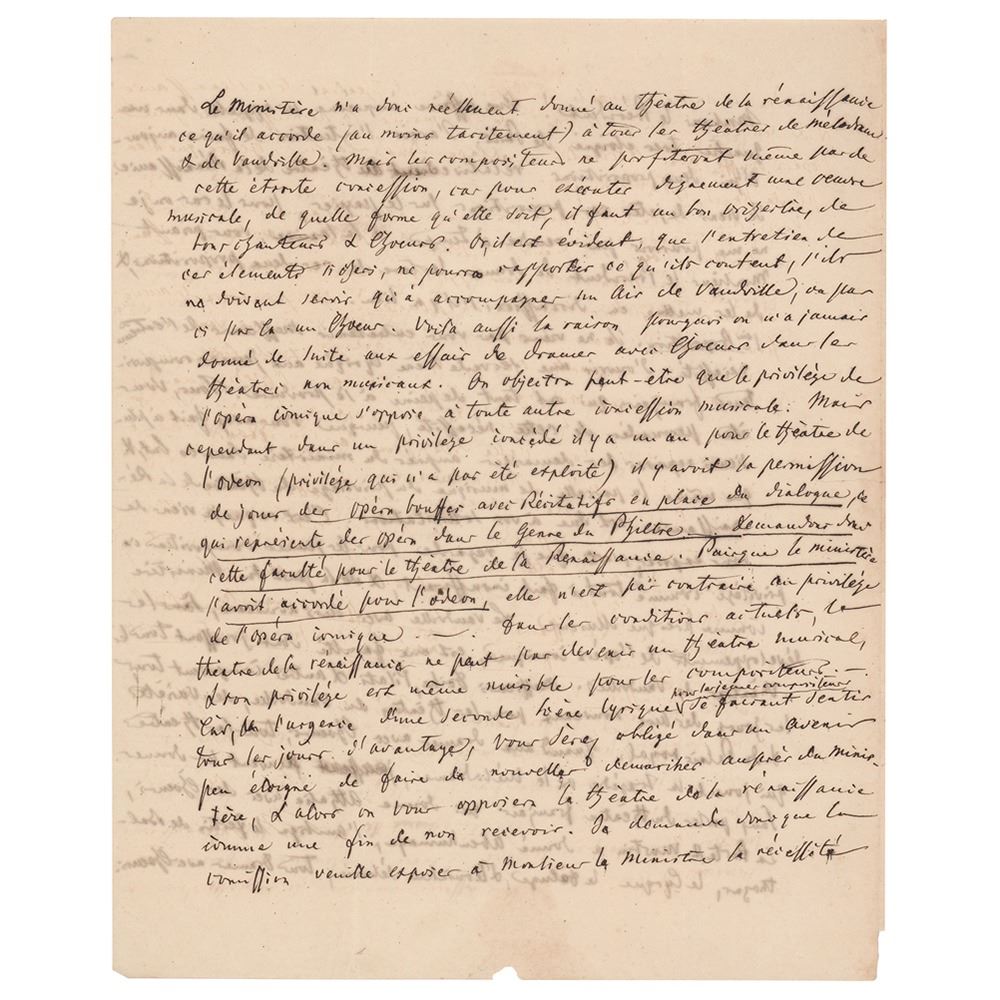 Le Ministère n'a donc réellement donné au théatre de la rénaissance
ce qu'il accorde (au moins tacitement) à tous les théatres de Mélodram
& de Vaudville. Mais les compositeurs ne profiteront même pas de
cette étroite concession, car pour exécuter dignement une oeuvre
musicale, de quelle forme qu'elle soit, il faut un bon orchestre, de
bons chanteurs & Choeurs. Or, il est évident, que l'entretien de
ces élements si chers, ne pourra rapporter ce qu'ils content, s'ils
ne doivent servir qu'à accompagner un Air de Vaudville, ou par
ci par là un Choeur. Voila aussi la raison pourquoi on n'a jamais
donné de suite aux essais de drames avec Choeurs dans les
théatres non musicaux. On objectra peut-être que le privilége de
l'opéra comique s'oppose à toute autre concession musicale. Mais
cependant dans un privilége concédé il y a un an pour le théatre de
l'odeon (privilége qui n'a pas été exploité) il y avoit la permission
de jouer des opéra bouffes avec Récitatifs en place du dialogue, ce
qui représente des opéra dans le Genre du Philtre. Demandons donc
cette faculté pour le théatre de la Renaissance. Puisque le ministère
l'avoit accordé pour l'odeon, elle n'est pas contraire au privilége
de l'opéra comique. — Dans les conditions actuels, le
théatre de la rénaissance ne peut pas devenir un théatre musical,
& son privilége est même nuisible pour les compositeurs. —
pour les jeunes compositeurs
Car, l'urgence d'une seconde scène lyrique se faisant sentir
tous les jours d'avantage, vous serez obligé dans un avenir
peu éloigné de faire de nouvelles demarches auprès du minis-
tère, & alors on vous opposera le théatre de la rénaissance
comme une fin de non recevoir. Je demande donc que la
comission veuille exposer à Monsieur le Ministre la nécessité